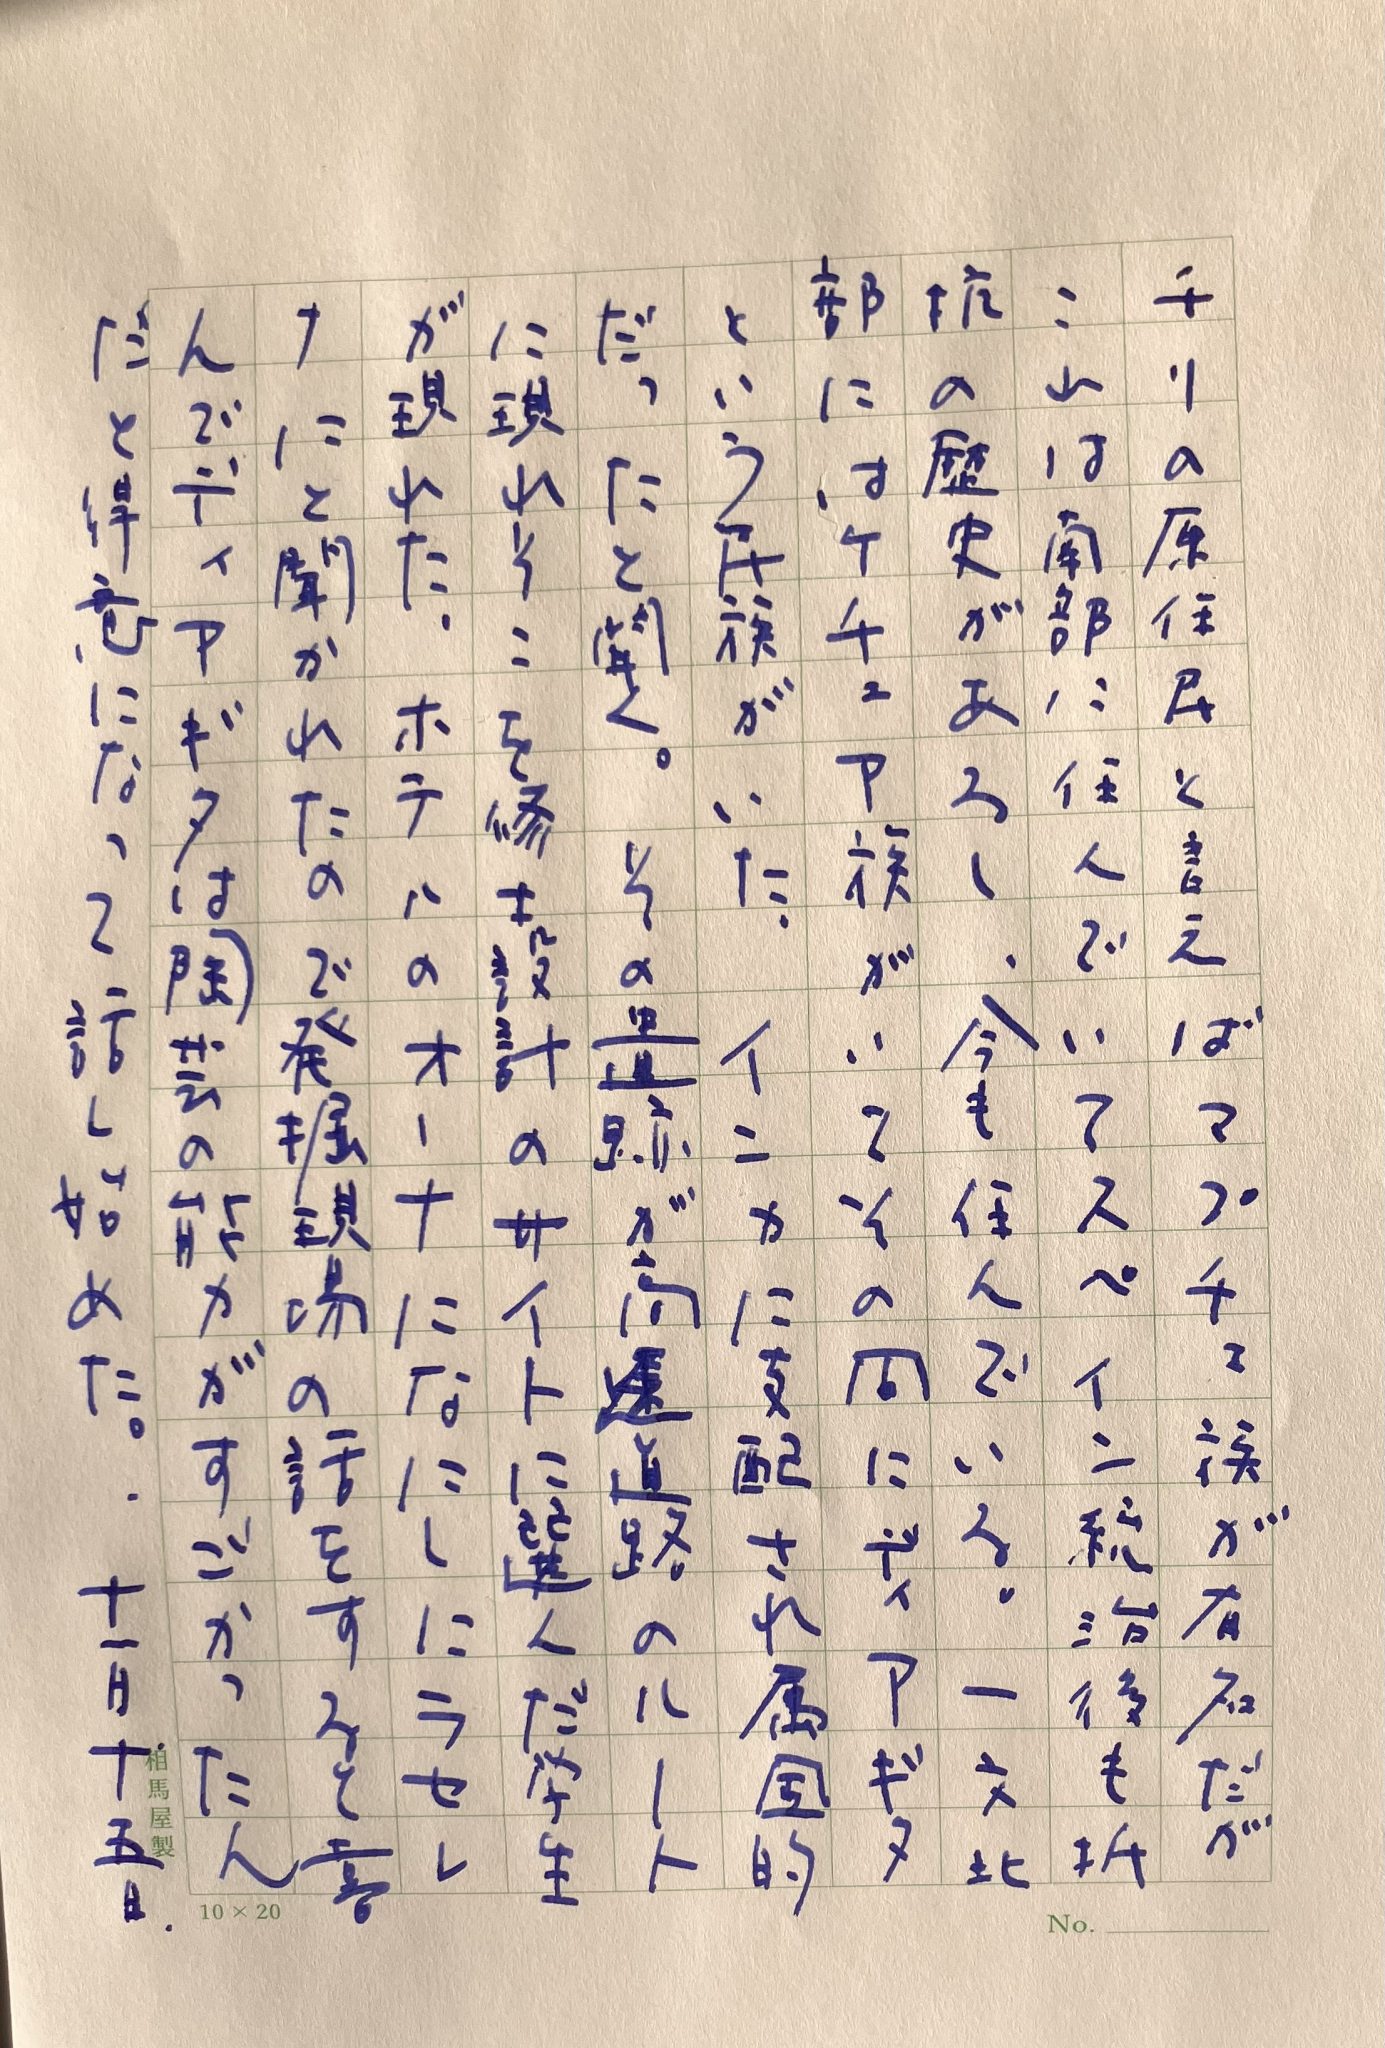 チリの原住民と言えばマプチェ族が有名だが
これは南部に住んでいてスペイン統治後も抵
抗の歴史があるし、今も住んでいる。一方北
部にはケチュア族がいてその間にディアギタ
という民族がいた。インカに支配され属国的
だったと聞く。その遺跡が高速道路のルート
に現れそこを修士設計のサイトに選んだ学生
が現れた。ホテルのオーナーになにしにラセレ
ナにと聞かれたので発掘現場の話をすると喜
んでディアギタは陶芸の能力がすごかったん
だと得意になって話し始めた。十一月十五日.
相馬屋製
10×20
No.